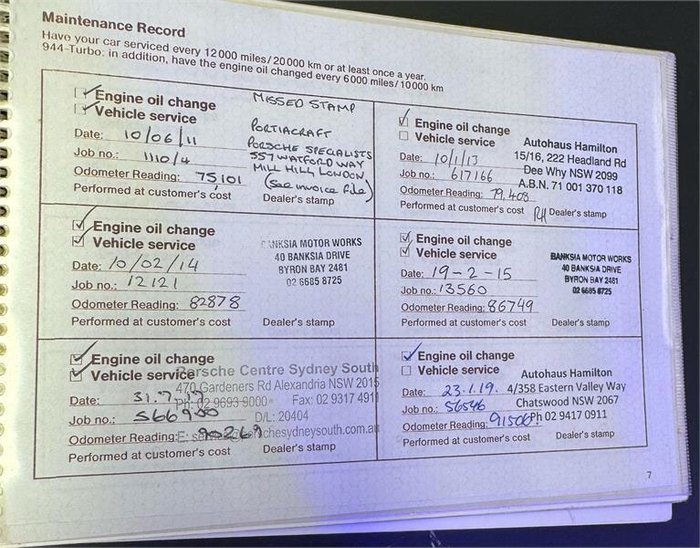 Maintenance Record
Have your car serviced every 12 000 miles/20 000 km or at least once a year.
944-Turbo: in addition, have the engine oil changed every 6 000 miles/10 000 km
Engine oil change
Vehicle service
Date: 10/06/11
Job no.: 1110/4
Odometer Reading: 75,101
Performed at customer's cost
MISSED STAMP
PORTIACRAFT
PORSCHE SPECIALISTS
557 WATFORD WAY
MILL HILL, LONDON,
(See invoice file)
Dealer's stamp
Engine oil change
Vehicle service
Date: 10/1/13
Job no.: 617166
Odometer Reading: 79,408
Performed at customer's cost
Autohaus Hamilton
15/16, 222 Headland Rd
Dee Why NSW 2099
A.B.N. 71 001 370 118
RH Dealer's stamp
Engine oil change
Vehicle service
Date: 10/02/14
Job no.: 12121
Odometer Reading: 82878
Performed at customer's cost
BANKSIA MOTOR WORKS
40 BANKSIA DRIVE
BYRON BAY 2481
02 6685 8725
Dealer's stamp
Engine oil change
Vehicle service
Date: 19-2-15
Job no.: 13560
Odometer Reading: 86749
Performed at customer's cost
BANKSIA MOTOR WORKS
40 BANKSIA DRIVE
BYRON BAY 2481
02 6685 8725
Dealer's stamp
Engine oil change
Vehicle service
Date: 31.7.
Job no.:
Odometer Reading: 90269
Performed at customer's cost
Porsche Centre Sydney South
470 Gardeners Rd Alexandria NSW 2015
Ph: 02 9693 9000 Fax: 02 9317 4911
D/L: 20404
Dealer's stamp
Engine oil change
Vehicle service
Date: 23.1.19.
Job no.: 56546
Odometer Reading: 91506.
Performed at customer's cost
Autohaus Hamilton
4/358 Eastern Valley Way
Chatswood NSW 2067
Ph 02 9417 0911
Dealer's stamp
7